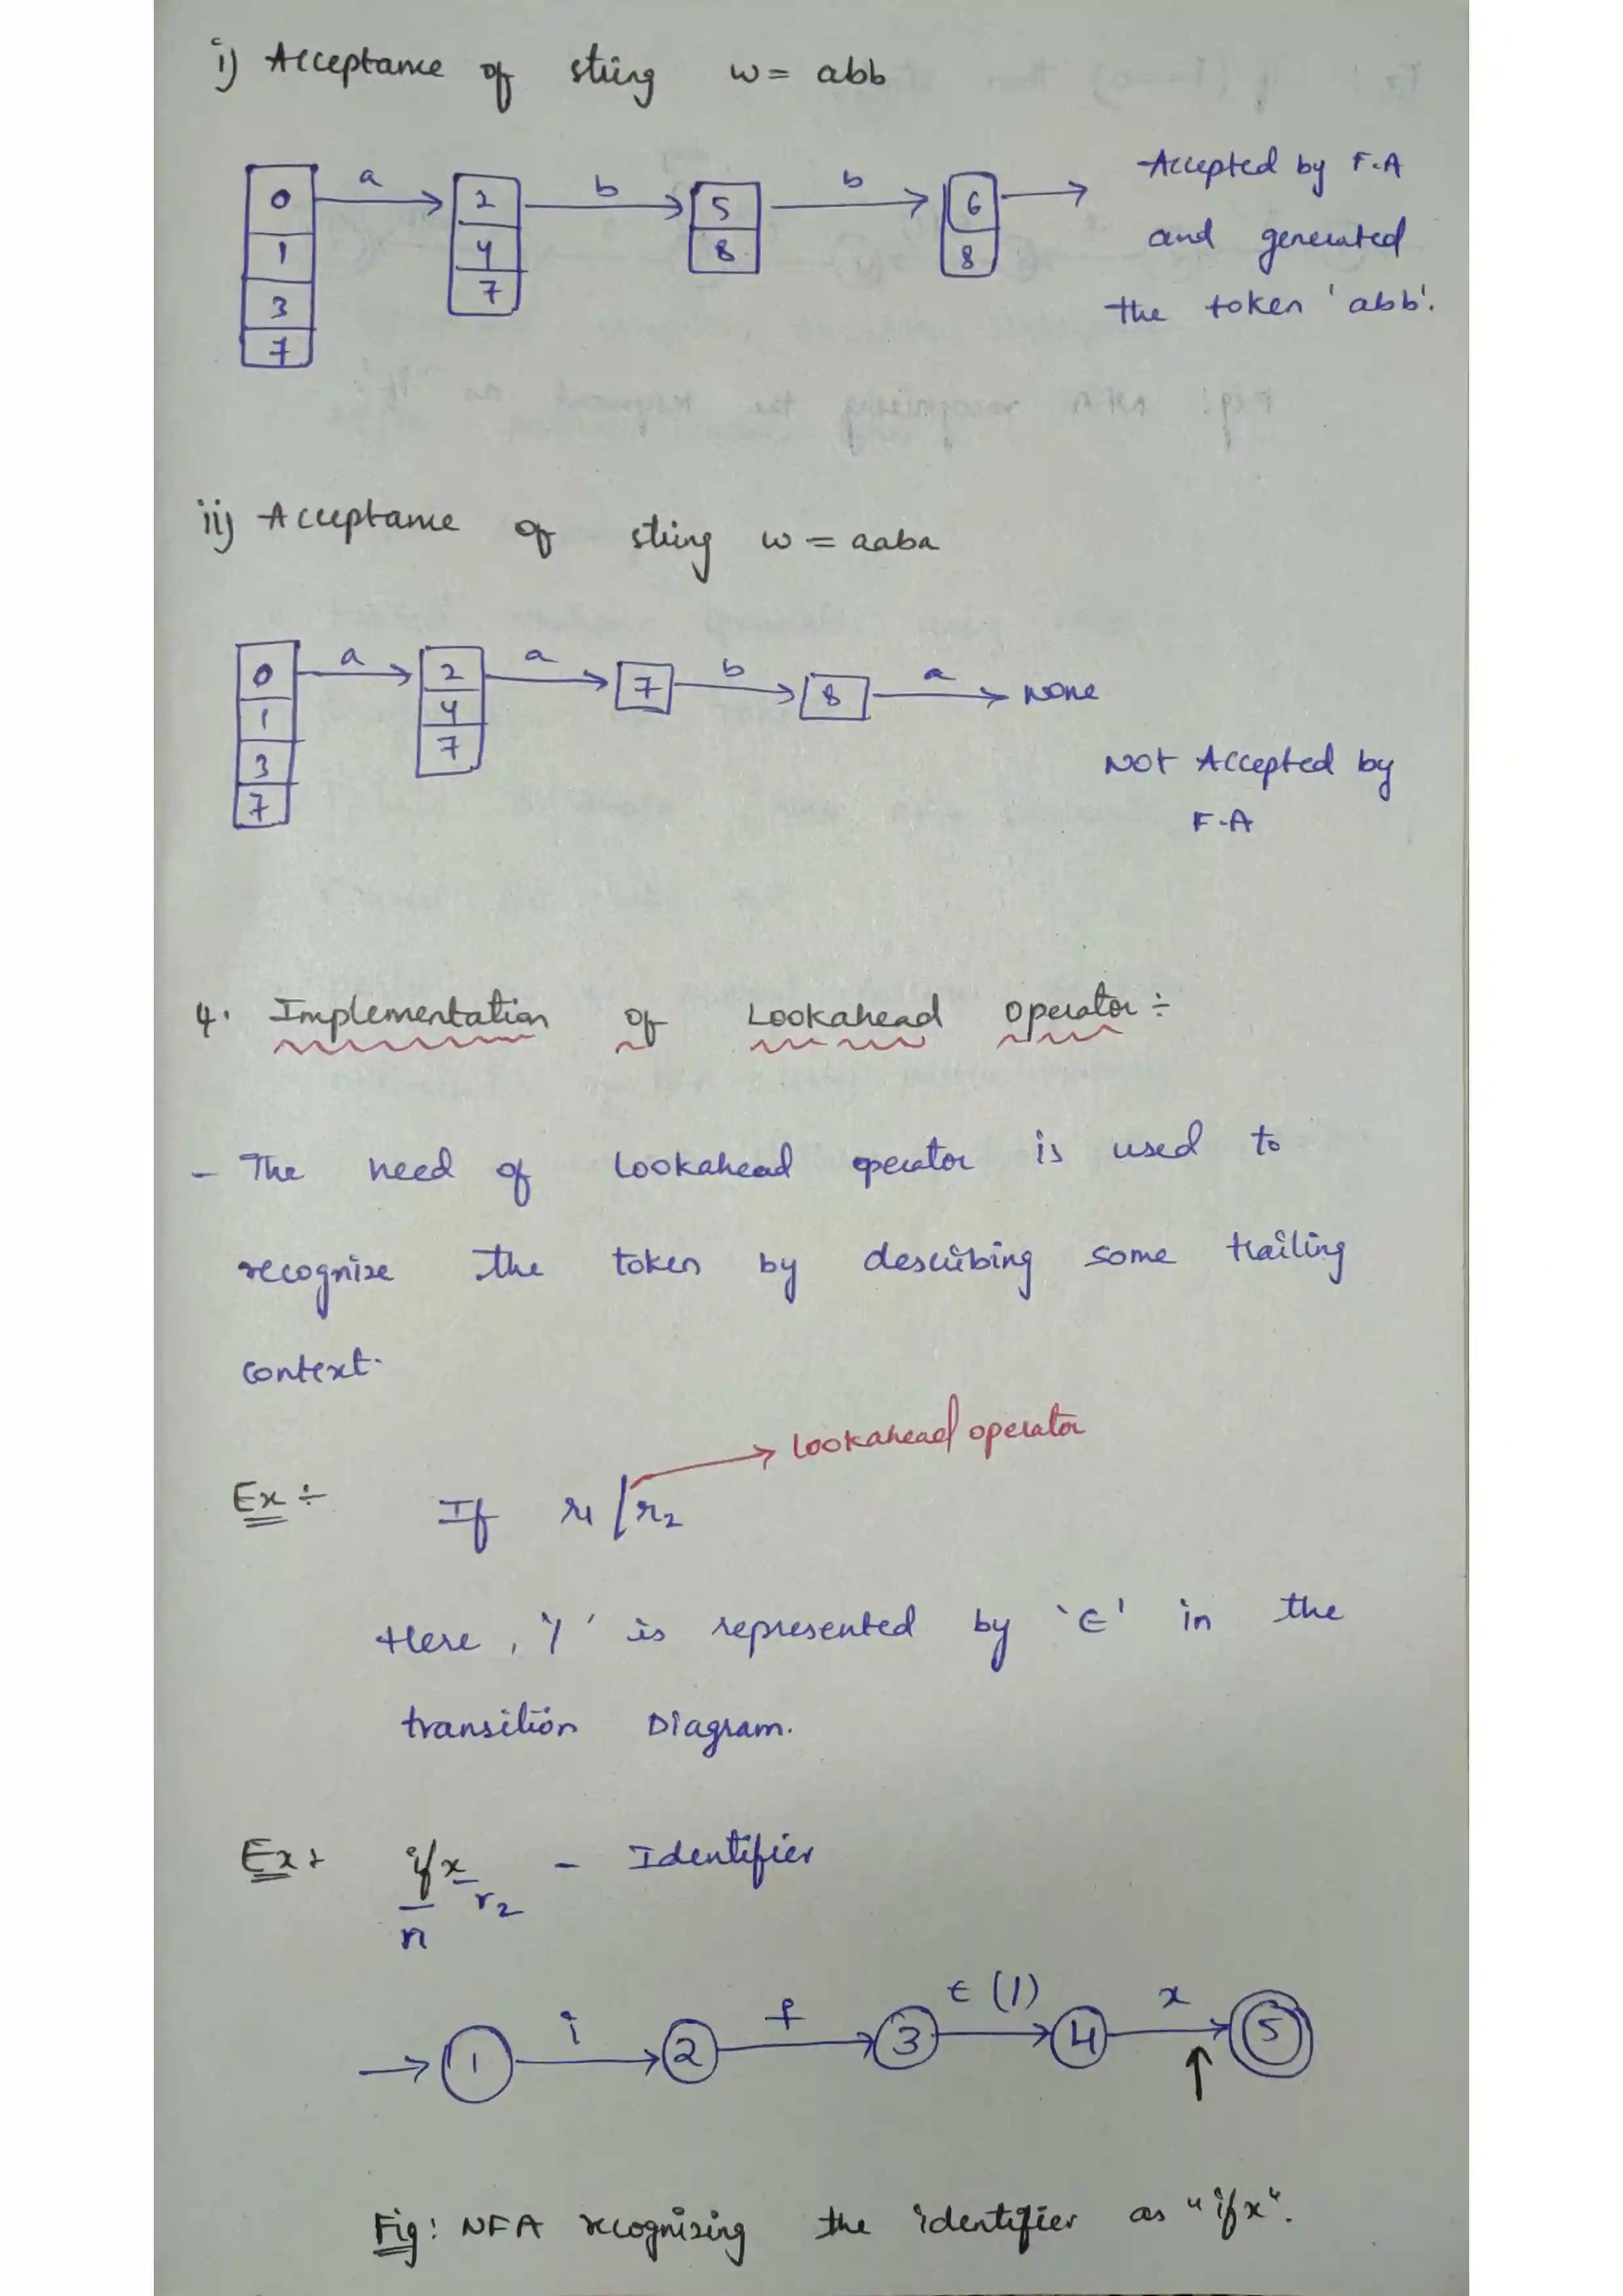 i) Acceptance of string w = abb
0 a 2 b 5 b 6 Accepted by F.A
1 4 8 8 and generated
3 7 the token 'abb'.
7
ii) Acceptance of string w = aaba
0 a 2 a 7 b 8 a None
1 4
3 7
7
Not Accepted by
F.A
4. Implementation of Lookahead operator ÷
- The need of lookahead operator is used to
recognize the token by describing some trailing
context.
lookahead operator
Ex ÷ If r1 / r2
Here, '/' is represented by 'ε' in the
transition Diagram.
Ex: ifx - Identifier
r1 r2
1 i 2 f 3 ε (/) 4 x 5
Fig: NFA recognising the identifier as "ifx".